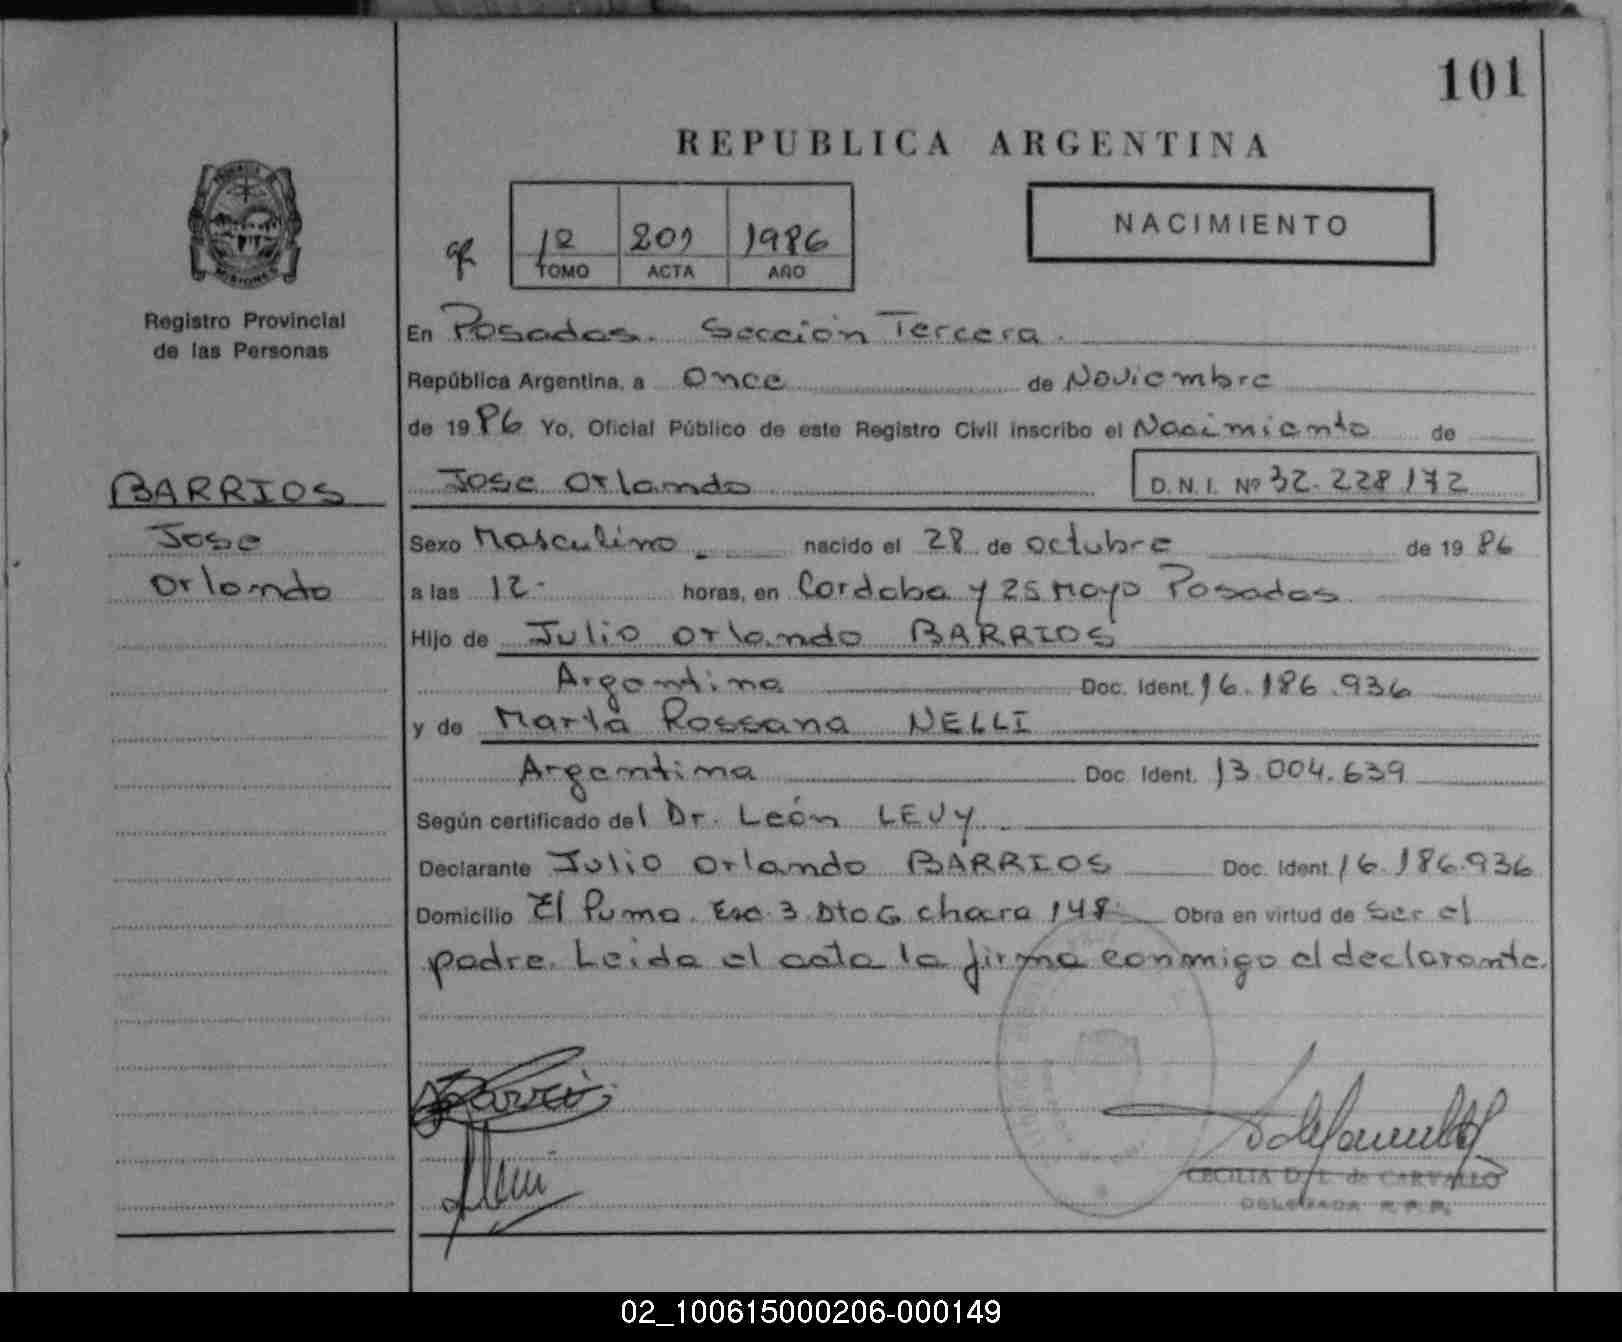 101
REPUBLICA ARGENTINA
12 201 1986
TOMO ACTA AÑO
NACIMIENTO
MISIONES
Registro Provincial
de las Personas
En Posadas. Sección Tercera.
República Argentina, a Once de Noviembre
de 1986 Yo, Oficial Público de este Registro Civil inscribo el Nacimiento de
BARRIOS
Jose
Orlando
Jose Orlando D.N.I. Nº 32.228172
Sexo Masculino. nacido el 28 de octubre de 1986
a las 12 horas, en Cordoba y 25 Mayo Posadas
Hijo de Julio Orlando BARRIOS
Argentina Doc. Ident. 16.186.936
y de Marta Rossana NELLI
Argentina Doc. Ident. 13.004.639
Según certificado del Dr. León LEVY.
Declarante Julio Orlando BARRIOS Doc. Ident. 16.186.936
Domicilio El Puma Esc. 3 Dto G chacra 148 Obra en virtud de Ser el
padre. Leida el acta la firma conmigo el declarante.
CECILIA D. L. de CARVALLO
DELEGADA R.P.P.
02_100615000206-000149